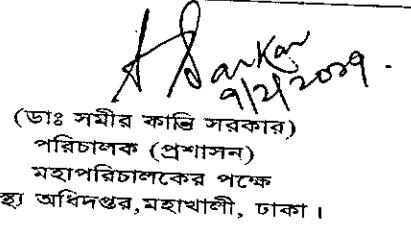 A Sarkar
৭/২/২০১৭
(ডাঃ সমীর কান্তি সরকার)
পরিচালক (প্রশাসন)
মহাপরিচালকের পক্ষে
স্থ্য অধিদপ্তর,মহাখালী, ঢাকা।